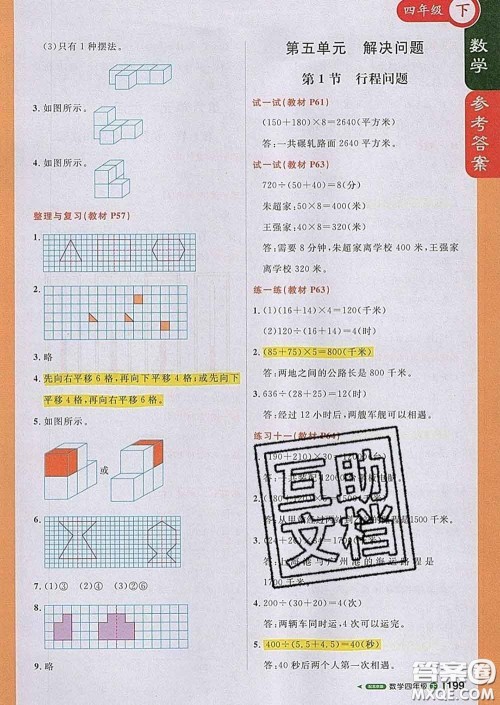 四年级 下
数学
参考答案
(3)只有 1 种摆法。
3. 如图所示。
4. 如图所示。
整理与复习(教材 P57)
1.
2.
3. 略
4. 先向右平移 6 格,再向下平移 4 格;或先向下
平移 4 格,再向右平移 6 格。
5. 如图所示。
或
6.
7. (1)①③ (2)④ (3)②⑥
8.
9. 略
第五单元 解决问题
第 1 节 行程问题
试一试(教材 P61)
(150+180)×8=2640(平方米)
答:一共碾轧路面 2640 平方米。
试一试(教材 P63)
720÷(50+40)=8(分)
朱超家:50×8=400(米)
王强家:40×8=320(米)
答:需要 8 分钟,朱超家离学校 400 米,王强家
离学校 320 米。
练一练(教材 P63)
1. (1)(16+14)×4=120(千米)
(2)120÷(16+14)=4(时)
2. (85+75)×5=800(千米)
答:两地之间的公路长是 800 千米。
3. 636÷(28+25)=12(时)
答:经过 12 小时后,两艘军舰可以相遇。
练习十一(教材 P64)
(190+210)×30=
2.
1500 千米。
3.
1500
千米。
4. 200÷(30+20)=4(时)
答:两辆车同时开出,4 小时后可以相遇。
5. 400÷(5.5+4.5)=40(秒)
答:40 秒后两个人第一次相遇。
互助
文档
答案圈
数学四年级 下 1199